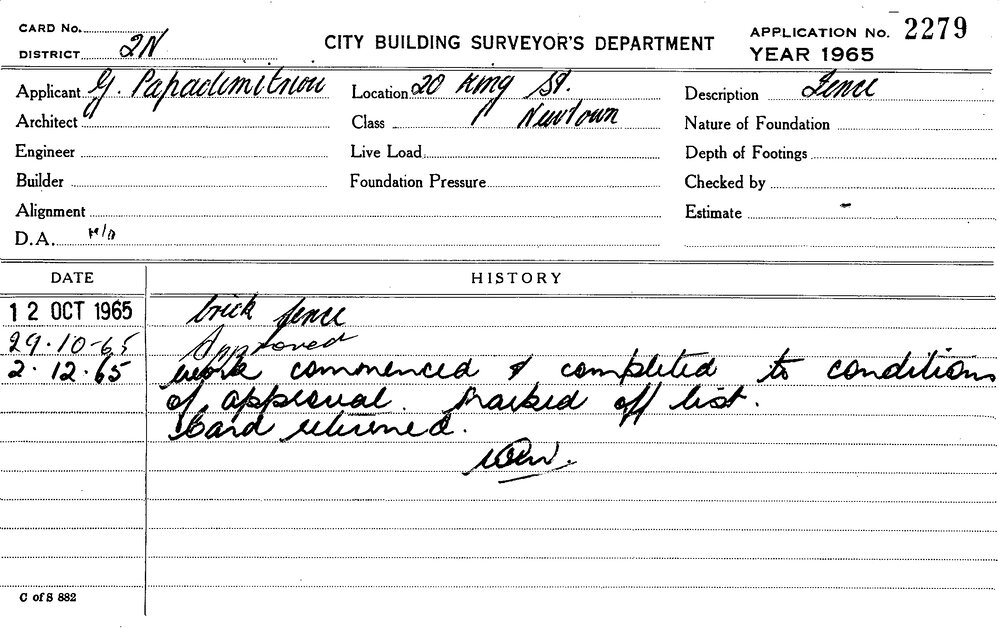 CARD No.
DISTRICT 2N
CITY BUILDING SURVEYOR'S DEPARTMENT
APPLICATION No. 2279
YEAR 1965
Applicant G. Papadimitriou
Location 20 King St.
Description Fence
Architect
Class Newtown
Nature of Foundation
Engineer
Live Load
Depth of Footings
Builder
Foundation Pressure
Checked by
Alignment
Estimate -
D.A.
DATE HISTORY
12 OCT 1965 brick fence
29.10-65 Approved
2.12.65 work commenced & completed to conditions
of approval. Marked off list.
Card returned.
C of S 882